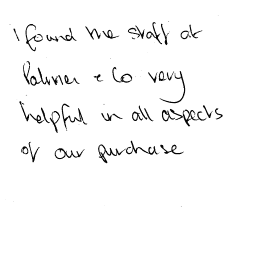 I found the staff at
Palmer & Co very
helpful in all aspects
of our purchase